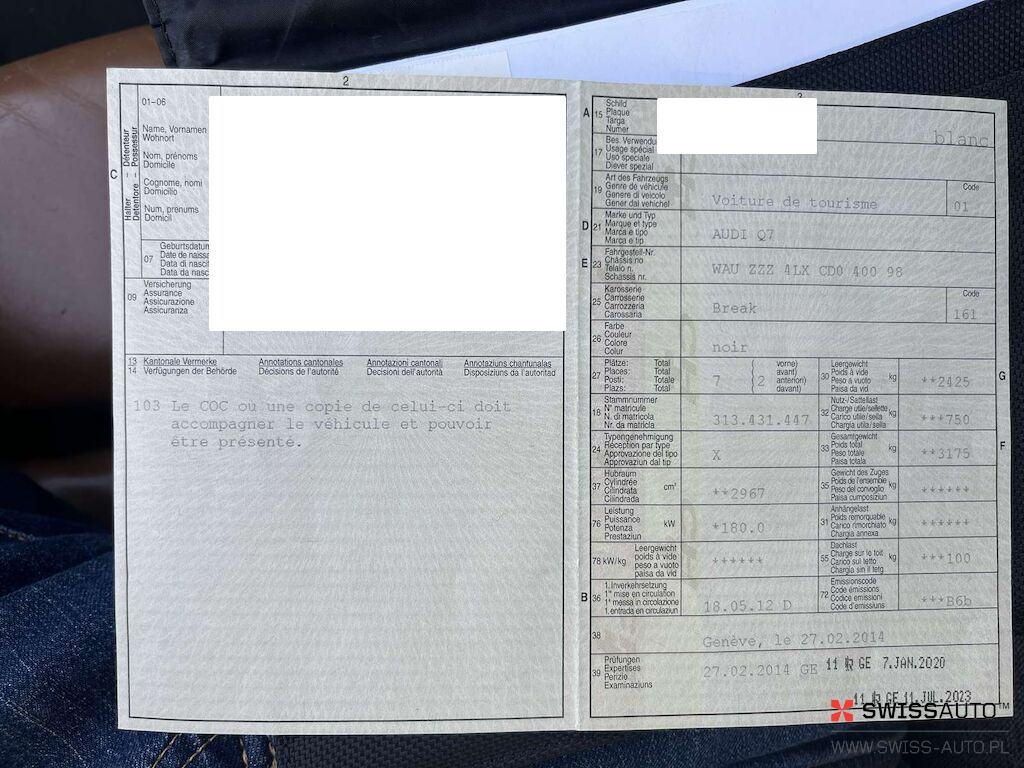 2
01–06
C
Halter – Détenteur
Detentore – Possessur
Name, Vornamen
Wohnort
Nom, prénoms
Domicile
Cognome, nomi
Domicilio
Num, prenums
Domicil
07
Geburtsdatum
Date de naissa
Data di nascit
Data da nasc
09
Versicherung
Assurance
Assicurazione
Assicuranza
13 Kantonale Vermerke Annotations cantonales Annotazioni cantonali Annotaziuns chantunalas
14 Verfügungen der Behörde Décisions de l'autorité Decisioni dell'autorità Disposiziuns da l'autoritad
103 Le COC ou une copie de celui-ci doit
accompagner le véhicule et pouvoir
être présenté.
3
A 15
Schild
Plaque
Targa
Numer
blanc
17
Bes. Verwendu
Usage spécial
Uso speciale
Diever spezial
19
Art des Fahrzeugs
Genre de véhicule
Genere di veicolo
Gener dal vehichel
Voiture de tourisme
Code
01
D 21
Marke und Typ
Marque et type
Marca e tipo
Marca e tip
AUDI Q7
E 23
Fahrgestell-Nr.
Châssis no
Telaio n.
Schassis nr.
WAU ZZZ 4LX CD0 400 98
25
Karosserie
Carrosserie
Carrozzeria
Carossaria
Break
Code
161
26
Farbe
Couleur
Colore
Colur
noir
27
Plätze: Total
Places: Total
Posti: Totale
Plazs: Total
7 ( 2
vorne)
avant)
anteriori)
davant)
30
Leergewicht
Poids à vide
Peso a vuoto
Paisa da vid
kg
**2425
G
18
Stammnummer
N° matricule
N. di matricola
Nr. da matricla
313.431.447
32
Nutz-/Sattellast
Charge utile/sellette
Carico utile/sella
Chargia utila/sella
kg
***750
24
Typengenehmigung
Réception par type
Approvazione del tipo
Approvaziun dal tip
X
33
Gesamtgewicht
Poids total
Peso totale
Paisa totala
kg
**3175
F
37
Hubraum
Cylindrée
Cilindrata
Cilindrada
cm³
**2967
35
Gewicht des Zuges
Poids de l'ensemble
Peso del convoglio
Paisa cumposiziun
kg
******
76
Leistung
Puissance
Potenza
Prestaziun
kW
*180.0
31
Anhängelast
Poids remorquable
Carico rimorchiato
Chargia annexa
kg
******
78 kW/kg
Leergewicht
poids à vide
peso a vuoto
paisa da vid
******
55
Dachlast
Charge sur le toit
Carico sul tetto
Chargia sin il tetg
kg
***100
B 36
1. Inverkehrsetzung
1re mise en circulation
1a messa in circolazione
1. entrada en circulaziun
18.05.12 D
72
Emissionscode
Code émissions
Codice emissioni
Code d'emissiuns
***B6b
38
Genève, le 27.02.2014
39
Prüfungen
Expertises
Perizie
Examinaziuns
27.02.2014 GE 11 GE 7.JAN.2020
11 GE 11.JUL.2023
SWISSAUTO™
WWW.SWISS-AUTO.PL